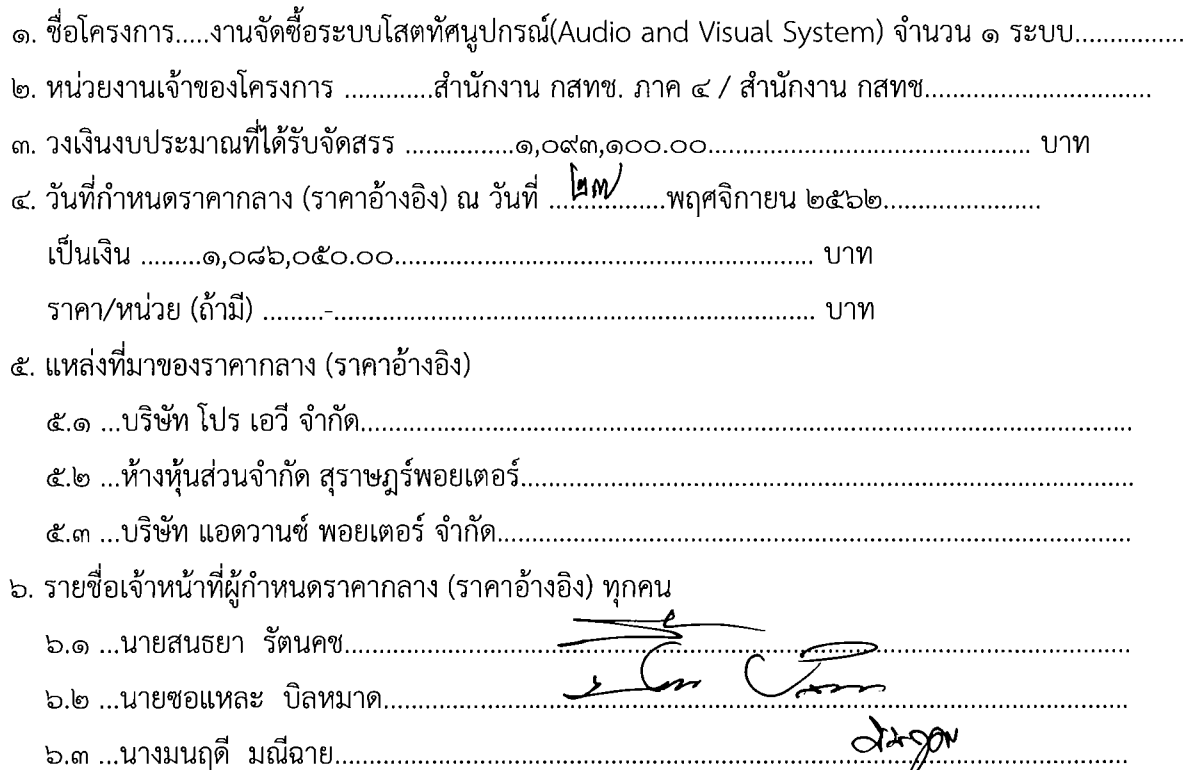 ๑. ชื่อโครงการ.....งานจัดซื้อระบบโสตทัศนูปกรณ์(Audio and Visual System) จำนวน ๑ ระบบ................
๒. หน่วยงานเจ้าของโครงการ .............สำนักงาน กสทช. ภาค ๔ / สำนักงาน กสทช.................................
๓. วงเงินงบประมาณที่ได้รับจัดสรร ................๑,๐๙๓,๑๐๐.๐๐............................................... บาท
๔. วันที่กำหนดราคากลาง (ราคาอ้างอิง) ณ วันที่ ...๒๗...พฤศจิกายน ๒๕๖๒.......................
เป็นเงิน .........๑,๐๘๖,๐๕๐.๐๐............................................................. บาท
ราคา/หน่วย (ถ้ามี) .........-....................................................................... บาท
๕. แหล่งที่มาของราคากลาง (ราคาอ้างอิง)
๕.๑ ...บริษัท โปร เอวี จำกัด.................................................................................................................
๕.๒ ...ห้างหุ้นส่วนจำกัด สุราษฎร์พอยเตอร์..........................................................................................
๕.๓ ...บริษัท แอดวานซ์ พอยเตอร์ จำกัด.............................................................................................
๖. รายชื่อเจ้าหน้าที่ผู้กำหนดราคากลาง (ราคาอ้างอิง) ทุกคน
๖.๑ ...นายสนธยา รัตนคช...................................................................................................................
๖.๒ ...นายซอแหละ บิลหมาด.............................................................................................................
๖.๓ ...นางมนฤดี มณีฉาย....................................................................................................................